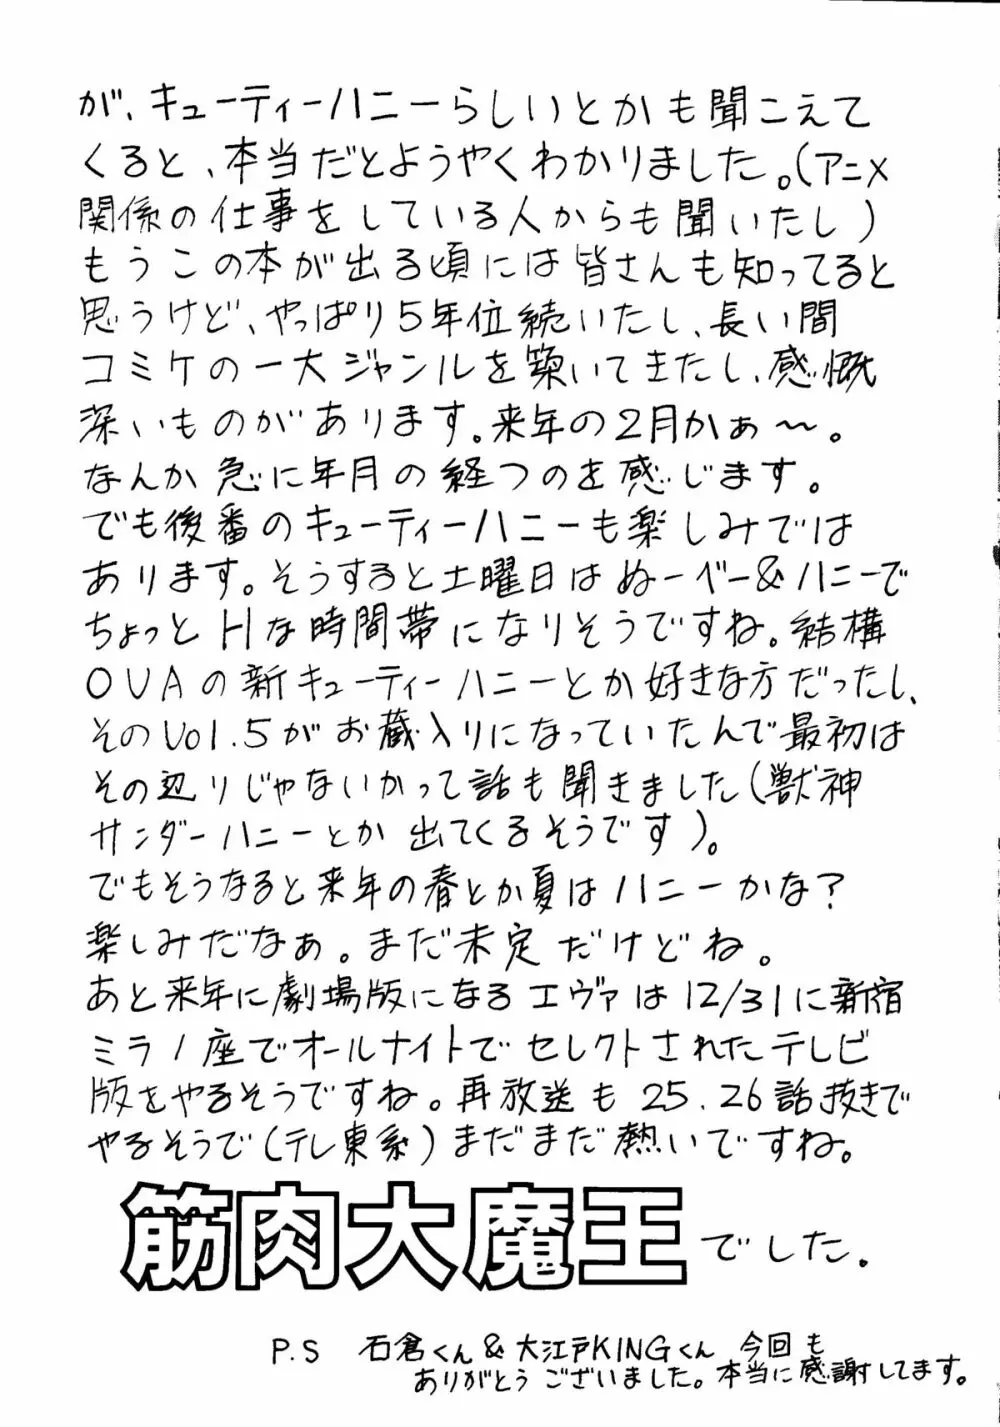 が、キューティーハニーらしいとかも聞こえて
くると、本当だとようやくわかりました。(アニメ
関係の仕事をしている人からも聞いたし)
もうこの本が出る頃には皆さんも知ってると
思うけど、やっぱり5年位続いたし、長い間
コミケの一大ジャンルを築いてきたし、感慨
深いものがあります。来年の2月かぁ〜。
なんか急に年月の経つのを感じます。
でも後番のキューティーハニーも楽しみでは
あります。そうすると土曜日はぬーべー&ハニーで
ちょっとHな時間帯になりそうですね。結構
OVAの新キューティーハニーとか好きな方だったし、
そのVol.5がお蔵入りになっていたんで最初は
その辺りじゃないかって話も聞きました(獣神
サンダーハニーとか出てくるそうです)。
でもそうなると来年の春とか夏はハニーかな?
楽しみだなぁ。まだ未定だけどね。
あと来年に劇場版になるエヴァは12/31に新宿
ミラノ座でオールナイトでセレクトされたテレビ
版をやるそうですね。再放送も25.26話抜きで
やるそうで(テレ東系)まだまだ熱いですね。
筋肉大魔王でした。
P.S 石倉くん&大江戸KINGくん 今回も
ありがとうございました。本当に感謝してます。